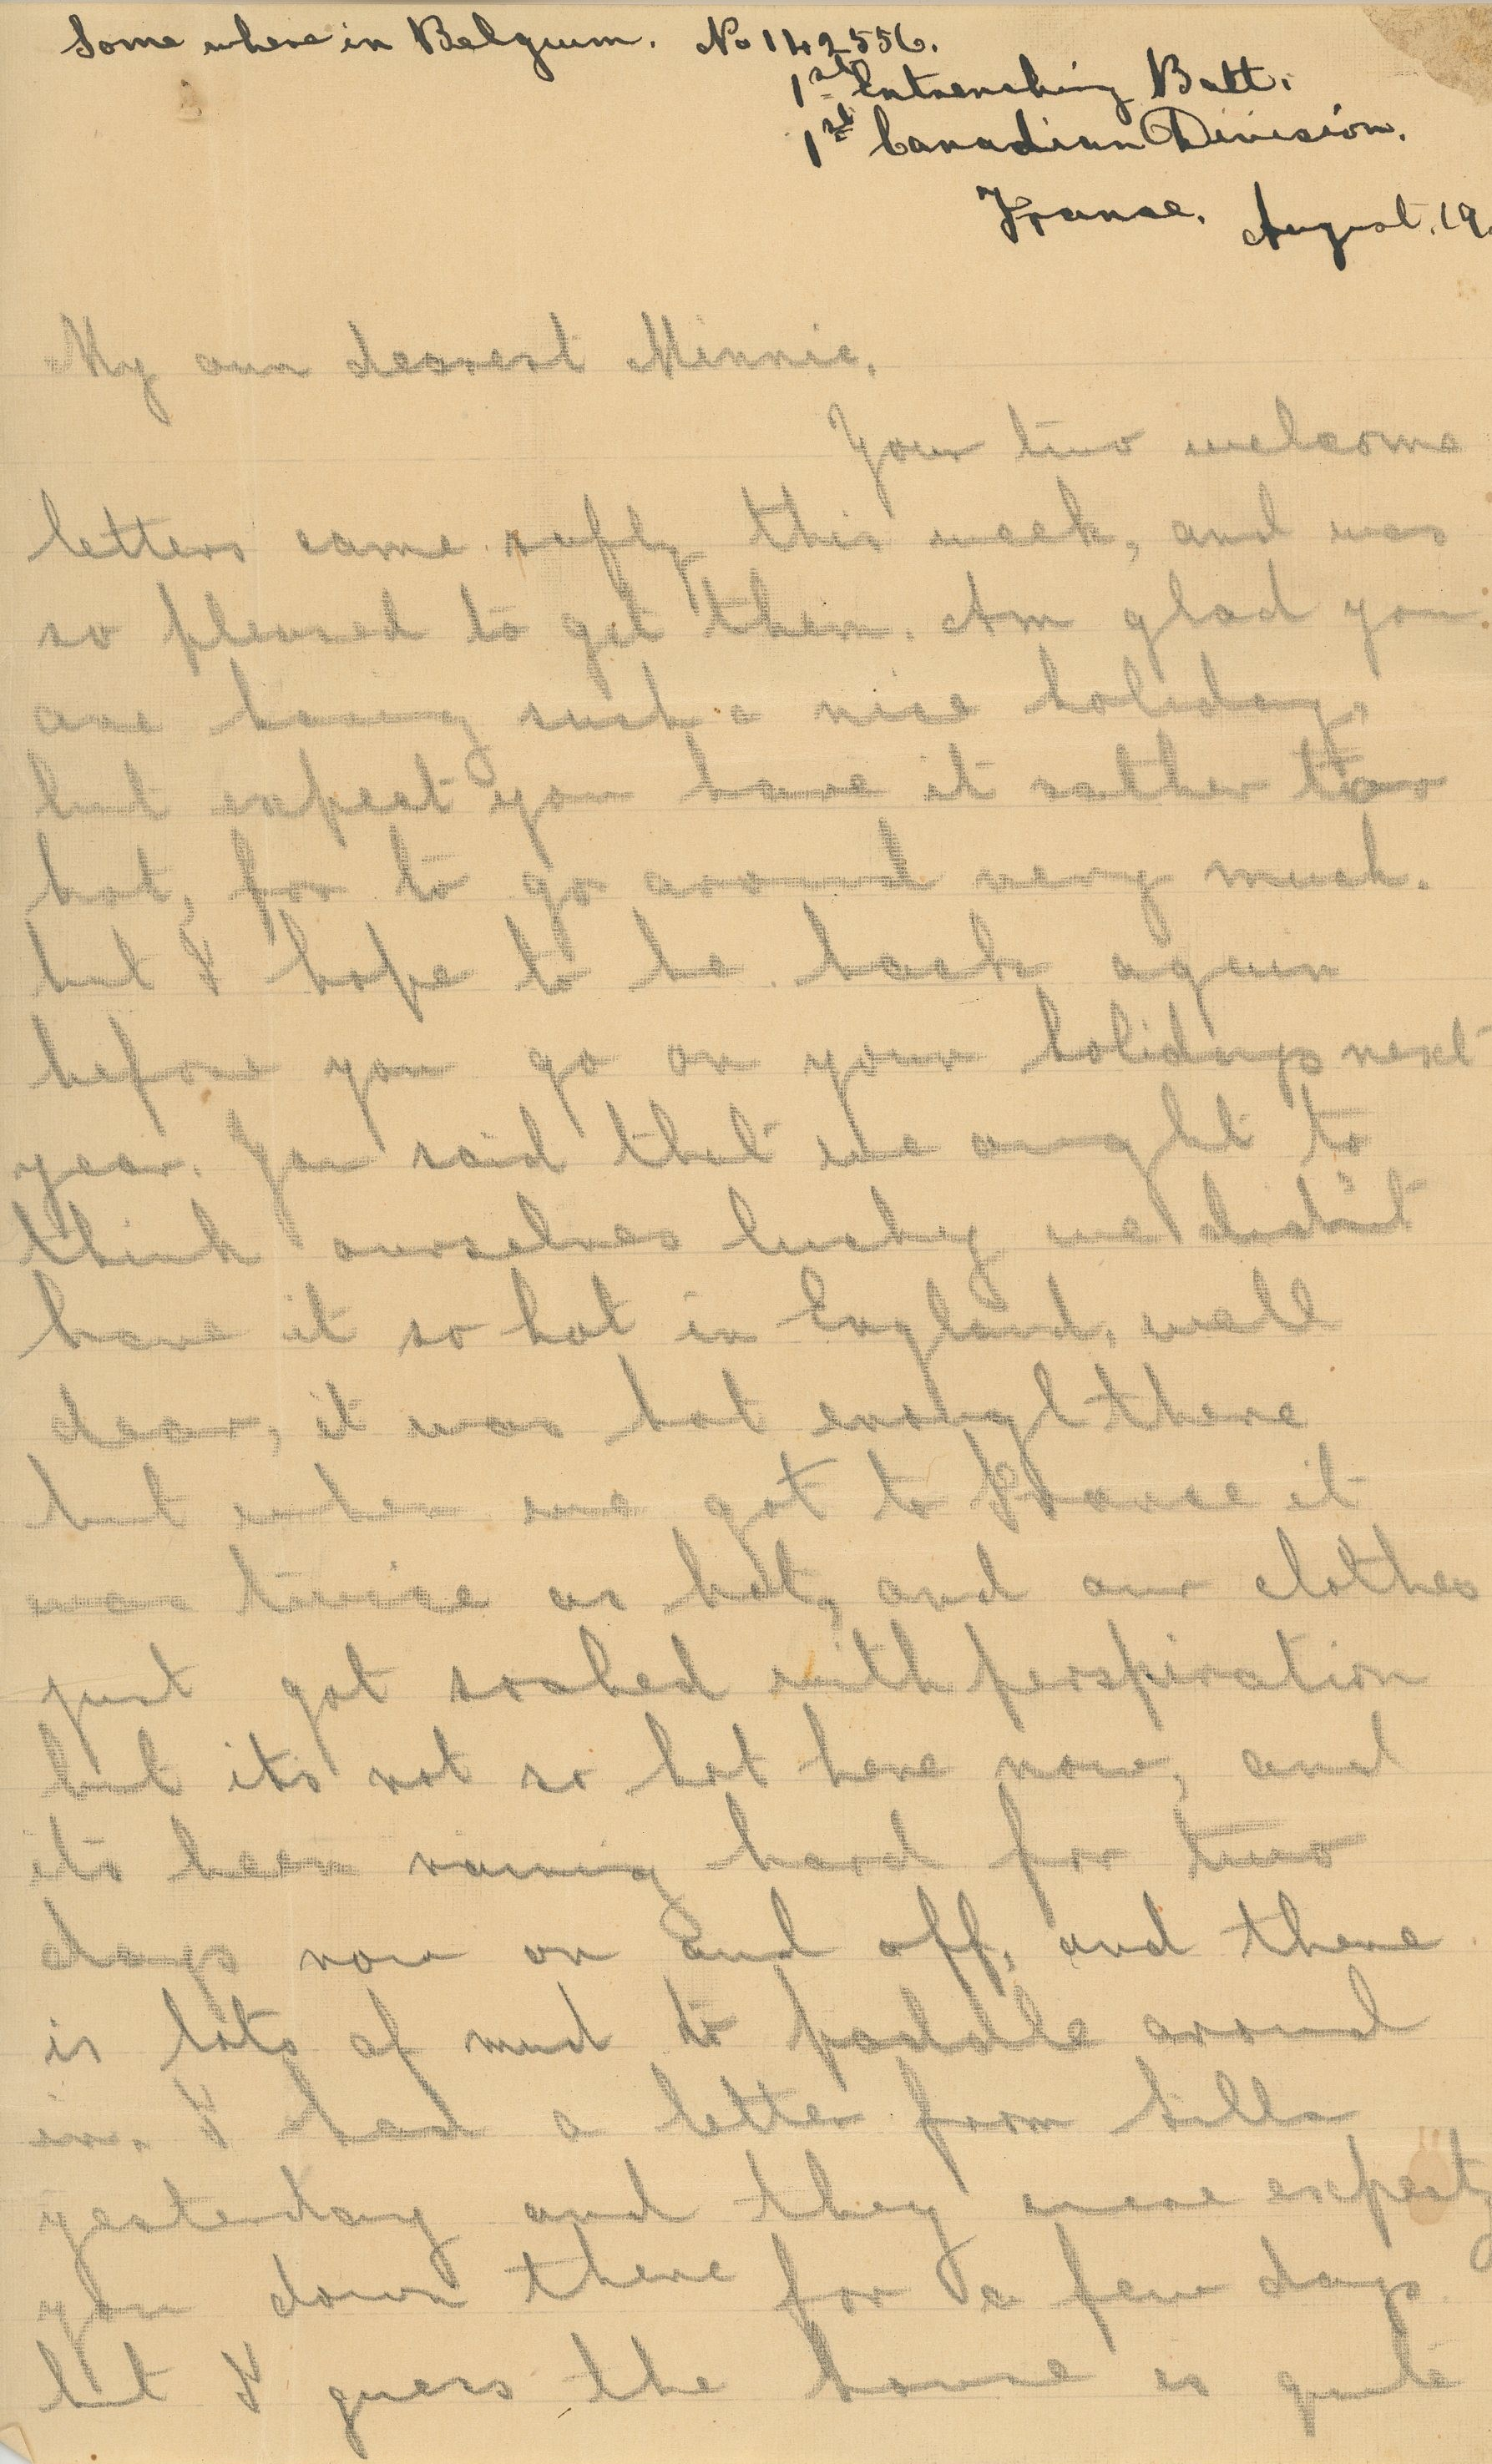 Some where in Belgium. No 142556.
1st Entrenching Batt.
1st Canadian Division.
France. August. 19.
My own dearest Minnie,
Your two welcome
letters came safly this week, and was
so pleased to get them. Am glad you
are having such a nice holiday,
but expect you have it rather too
hot, for to go around very much.
but I hope to be back again
before you go on your holidays next
year. You said that we ought to
think ourselves lucky we didn't
have it so hot in England, well
dear, it was hot enough there
but when we got to France it
was twice as hot, and our clothes
just got soaked with perspiration
but its not so hot here now, and
its been raining hard for two
days now on and off, and there
is lots of mud to paddle around
in. I had a letter from
yesterday and they were expectg
you down there for a few days
but I guess the house is quite